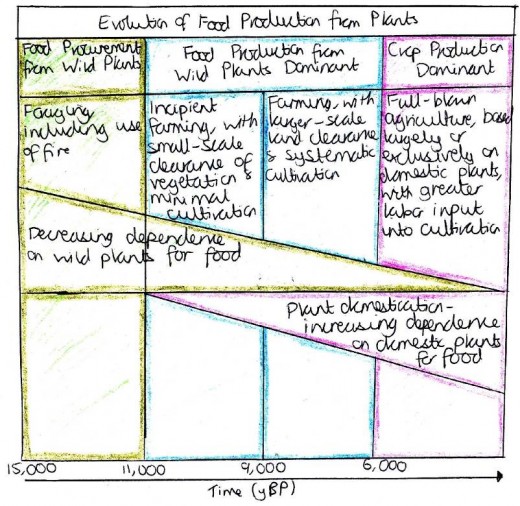 Evolution of Food Production from Plants
Food Procurement
from Wild Plants
Food Production from
Wild Plants Dominant
Crop Production
Dominant
Foraging,
including use
of fire
Incipient
farming, with
small-scale
clearance of
vegetation &
minimal
cultivation
Farming, with
larger-scale
land clearance
& systematic
cultivation
Full-blown
agriculture, based
largely or
exclusively on
domestic plants,
with greater
labor input
into cultivation
Decreasing dependence
on wild plants for food
Plant domestication-
increasing dependence
on domestic plants
for food
15,000
11,000
9,000
6,000
Time (yBP)